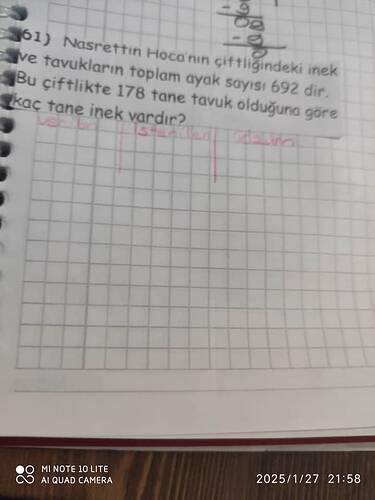 61) Nasrettin Hoca'nın çiftliğindeki inek
ve tavukların toplam ayak sayısı 692 dir.
Bu çiftlikte 178 tane tavuk olduğuna göre
kaç tane inek vardır?
MI NOTE 10 LITE
AI QUAD CAMERA
2025/1/27 21:58